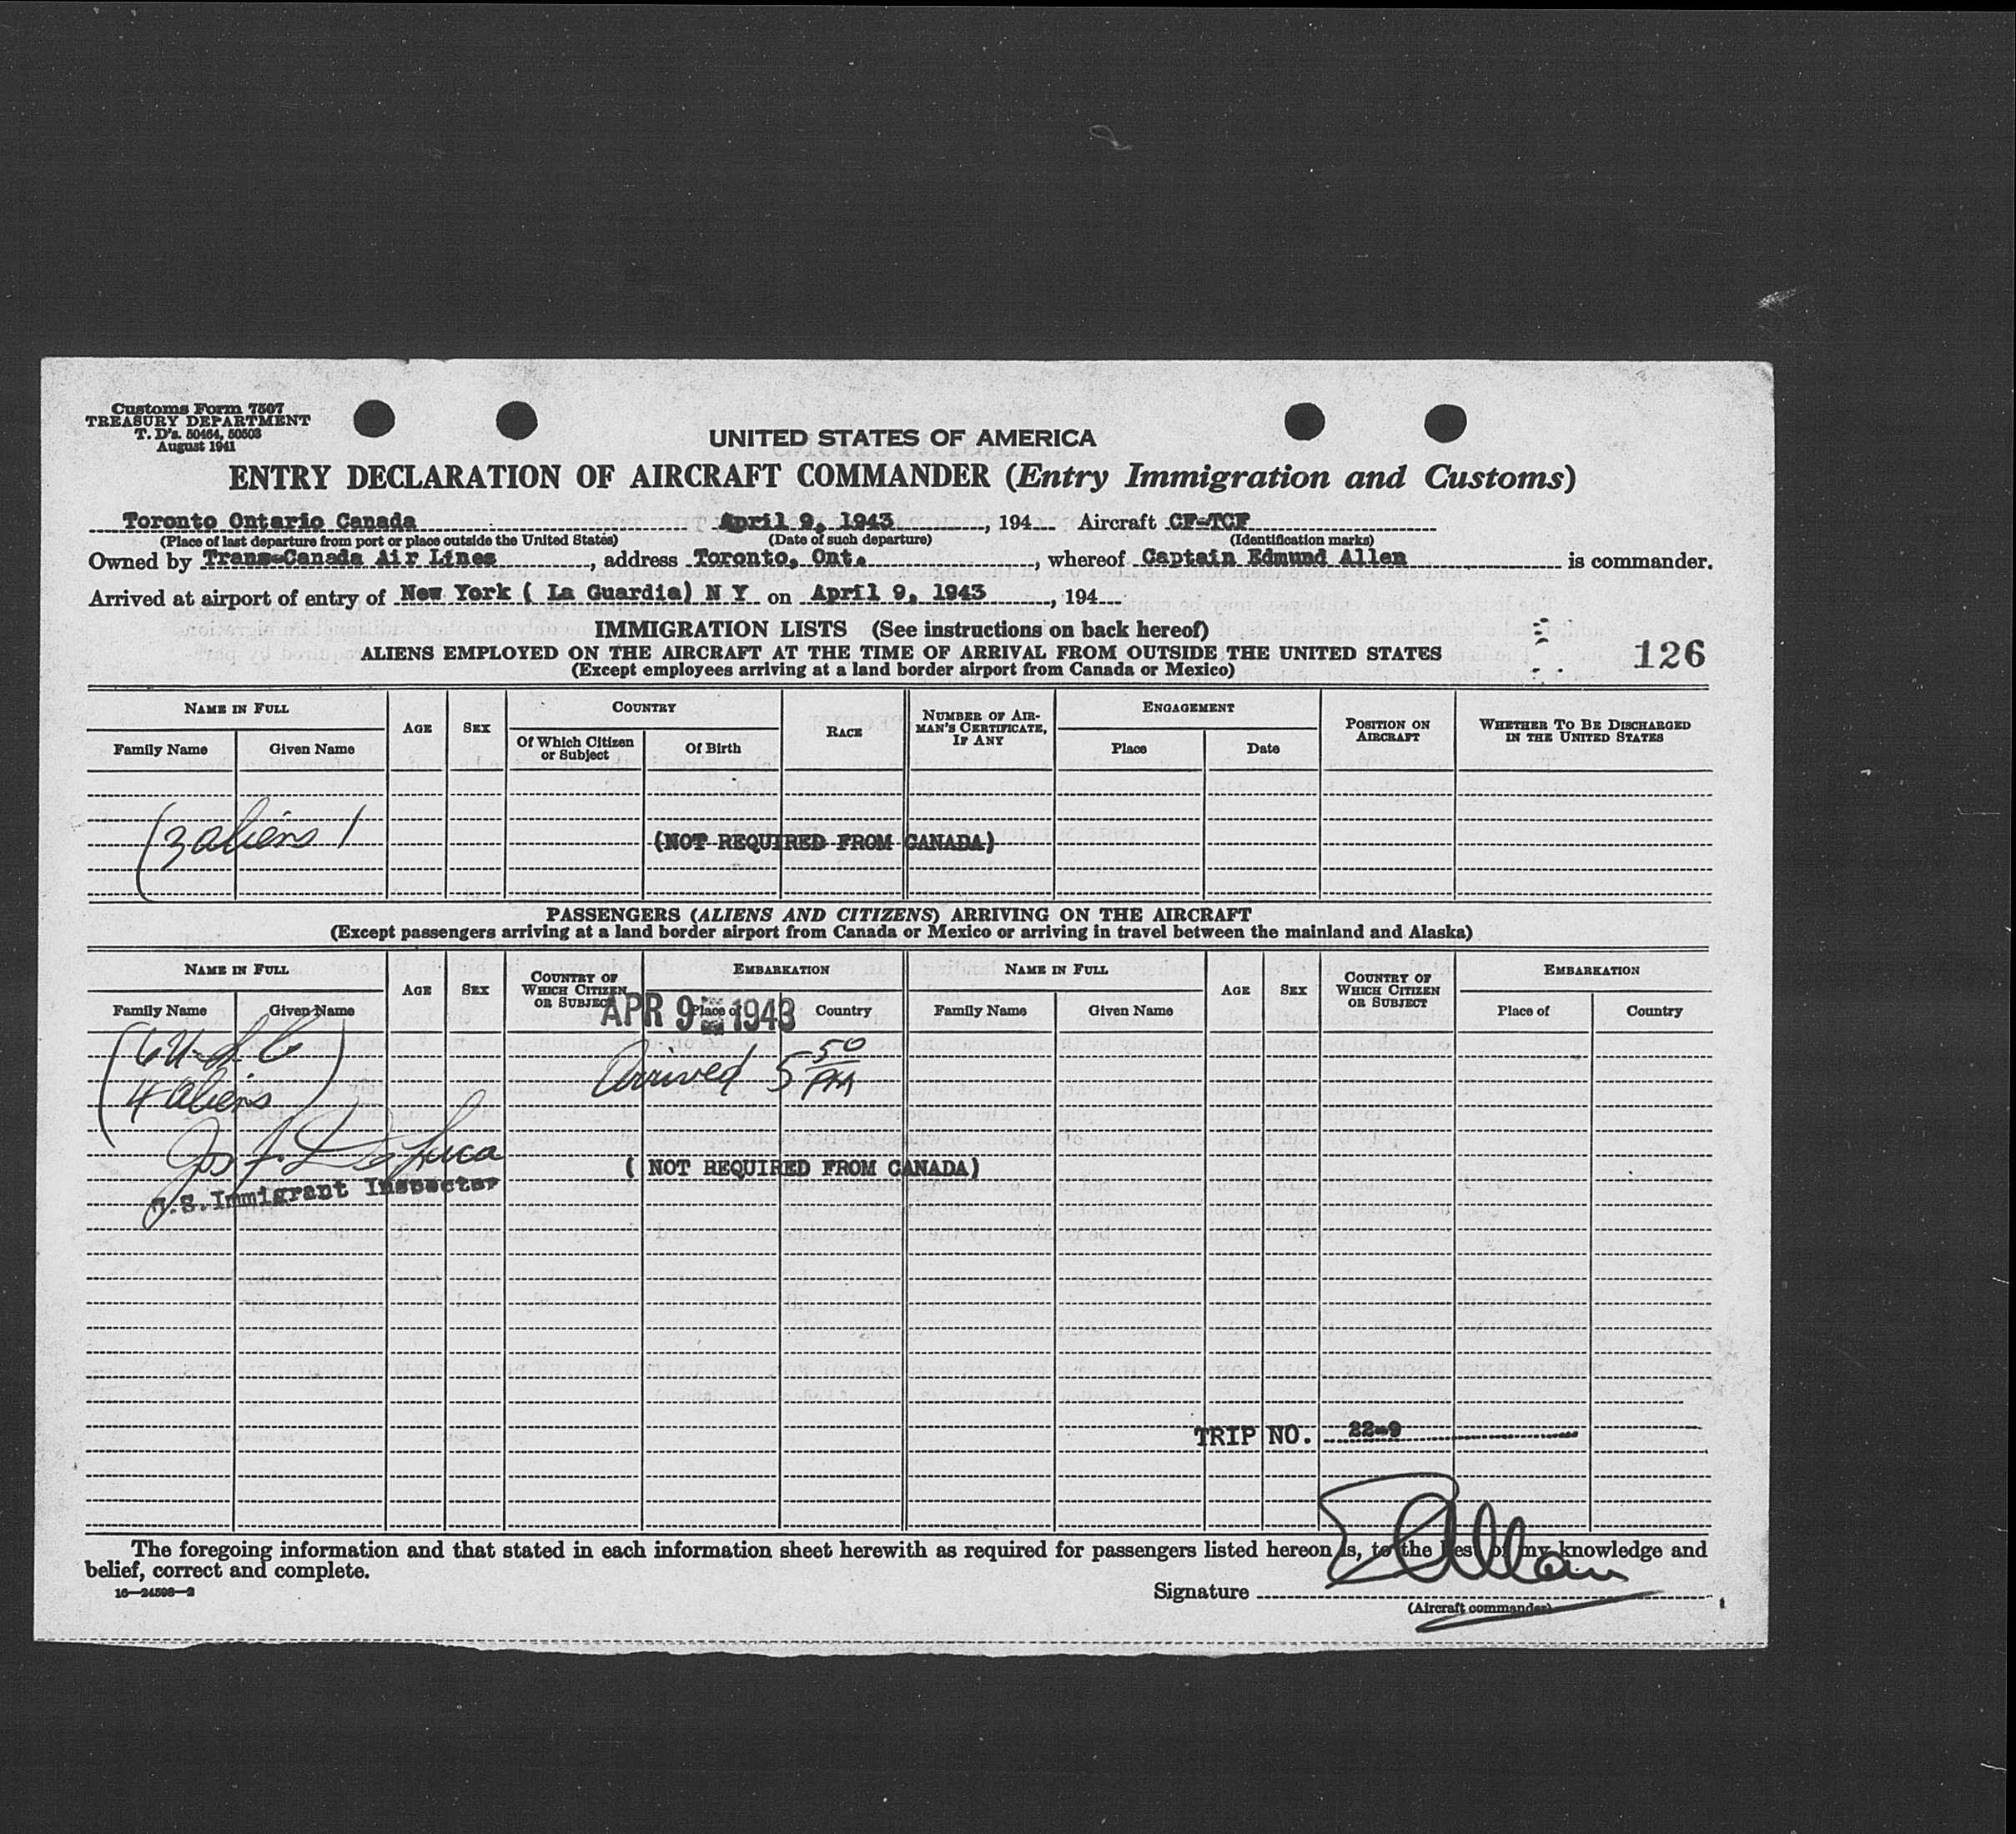 Customs Form 7507
TREASURY DEPARTMENT
T. D's. 50464, 50503
August 1941
UNITED STATES OF AMERICA
ENTRY DECLARATION OF AIRCRAFT COMMANDER (Entry Immigration and Customs)
Toronto Ontario Canada April 9, 1943, 194 Aircraft CF-TCF
(Place of last departure from port or place outside the United States) (Date of such departure) (Identification marks)
Owned by Trans-Canada Air Lines, address Toronto, Ont., whereof Captain Edmund Allen is commander.
Arrived at airport of entry of New York ( La Guardia) N Y on April 9, 1943, 194
IMMIGRATION LISTS (See instructions on back hereof)
126
ALIENS EMPLOYED ON THE AIRCRAFT AT THE TIME OF ARRIVAL FROM OUTSIDE THE UNITED STATES
(Except employees arriving at a land border airport from Canada or Mexico)
NAME IN FULL AGE SEX COUNTRY RACE NUMBER OF AIRMAN'S CERTIFICATE, IF ANY ENGAGEMENT POSITION ON AIRCRAFT WHETHER TO BE DISCHARGED IN THE UNITED STATES
Family Name Given Name Of Which Citizen or Subject Of Birth Place Date
(3 aliens)
(NOT REQUIRED FROM CANADA)
PASSENGERS (ALIENS AND CITIZENS) ARRIVING ON THE AIRCRAFT
(Except passengers arriving at a land border airport from Canada or Mexico or arriving in travel between the mainland and Alaska)
NAME IN FULL AGE SEX COUNTRY OF WHICH CITIZEN OR SUBJECT EMBARKATION NAME IN FULL AGE SEX COUNTRY OF WHICH CITIZEN OR SUBJECT EMBARKATION
Family Name Given Name Place of Country Family Name Given Name Place of Country
APR 9 1943
4 aliens
Arrived 5 50 PM
Jos. J. DeLuca
U.S. Immigrant Inspector
( NOT REQUIRED FROM CANADA)
TRIP NO. 22-9
The foregoing information and that stated in each information sheet herewith as required for passengers listed hereon is, to the best of my knowledge and
belief, correct and complete.
16—24598—2
Signature E Allen
(Aircraft commander)